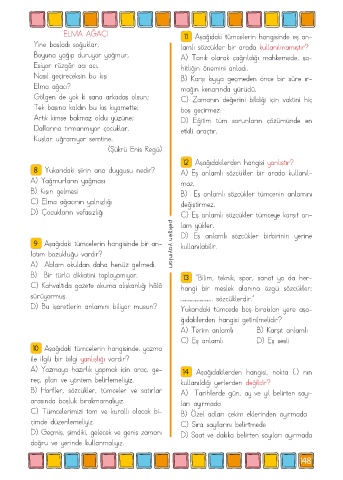 ELMA AĞACI
Yine başladı soğuklar,
Boyuna yağıp duruyor yağmur,
Esiyor rüzgâr acı acı.
Nasıl geçireceksin bu kış
Elma ağacı?
Gölgen de yok ki sana arkadaş olsun;
Tek başına kaldın bu kış kıyamette;
Artık kimse bakmaz oldu yüzüne;
Dallarına tırmanmıyor çocuklar,
Kuşlar uğramıyor semtine.
(Şükrü Enis Regü)
8 Yukarıdaki şiirin ana duygusu nedir?
A) Yağmurların yağması
B) Kışın gelmesi
C) Elma ağacının yalnızlığı
D) Çocukların vefasızlığı
9 Aşağıdaki tümcelerin hangisinde bir an-
latım bozukluğu vardır?
A) Ablam okuldan daha henüz gelmedi.
B) Bir türlü dikkatini toplayamıyor.
C) Kahvaltıda gazete okuma alışkanlığı hâlâ
sürüyormuş.
D) Bu işaretlerin anlamını biliyor musun?
10 Aşağıdaki tümcelerin hangisinde, yazma
ile ilgili bir bilgi yanlışlığı vardır?
A) Yazmaya hazırlık yapmak için araç, ge-
reç, plan ve yöntem belirlemeliyiz.
B) Harfler, sözcükler, tümceler ve satırlar
arasında boşluk bırakmamalıyız.
C) Tümcelerimizi tam ve kurallı olacak bi-
çimde düzenlemeliyiz.
D) Geçmiş, şimdiki, gelecek ve geniş zamanı
doğru ve yerinde kullanmalıyız.
11 Aşağıdaki tümcelerin hangisinde eş an-
lamlı sözcükler bir arada kullanılmamıştır?
A) Tanık olarak çağrıldığı mahkemede, şa-
hitliğin önemini anladı.
B) Karşı kıyıya geçmeden önce bir süre ır-
mağın kenarında yürüdü.
C) Zamanın değerini bildiği için vaktini hiç
boş geçirmez.
D) Eğitim tüm sorunların çözümünde en
etkili araçtır.
12 Aşağıdakilerden hangisi yanlıştır?
A) Eş anlamlı sözcükler bir arada kullanıl-
maz.
B) Eş anlamlı sözcükler tümcenin anlamını
değiştirmez.
C) Eş anlamlı sözcükler tümceye karşıt an-
lam yükler.
D) Eş anlamlı sözcükler birbirinin yerine
kullanılabilir.
13 "Bilim, teknik, spor, sanat ya da her-
hangi bir meslek alanına özgü sözcükler;
................ sözcüklerdir."
Yukarıdaki tümcede boş bırakılan yere aşa-
ğıdakilerden hangisi getirilmelidir?
A) Terim anlamlı B) Karşıt anlamlı
C) Eş anlamlı D) Eş sesli
14 Aşağıdakilerden hangisi, nokta (.) nın
kullanıldığı yerlerden değildir?
A) Tarihlerde gün, ay ve yıl belirten sayı-
ları ayırmada
B) Özel adları çekim eklerinden ayırmada
C) Sıra sayılarını belirtmede
D) Saat ve dakika belirten sayıları ayırmada
148